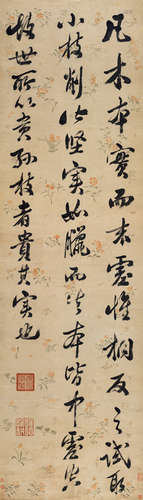 凡木本實而末虛惟桐反之試取
小枝削皆堅實如臘而其本皆中虛空
故世所以貴孫枝者貴其實也